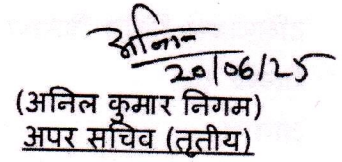 अनिल
20/06/25
(अनिल कुमार निगम)
अपर सचिव (तृतीय)